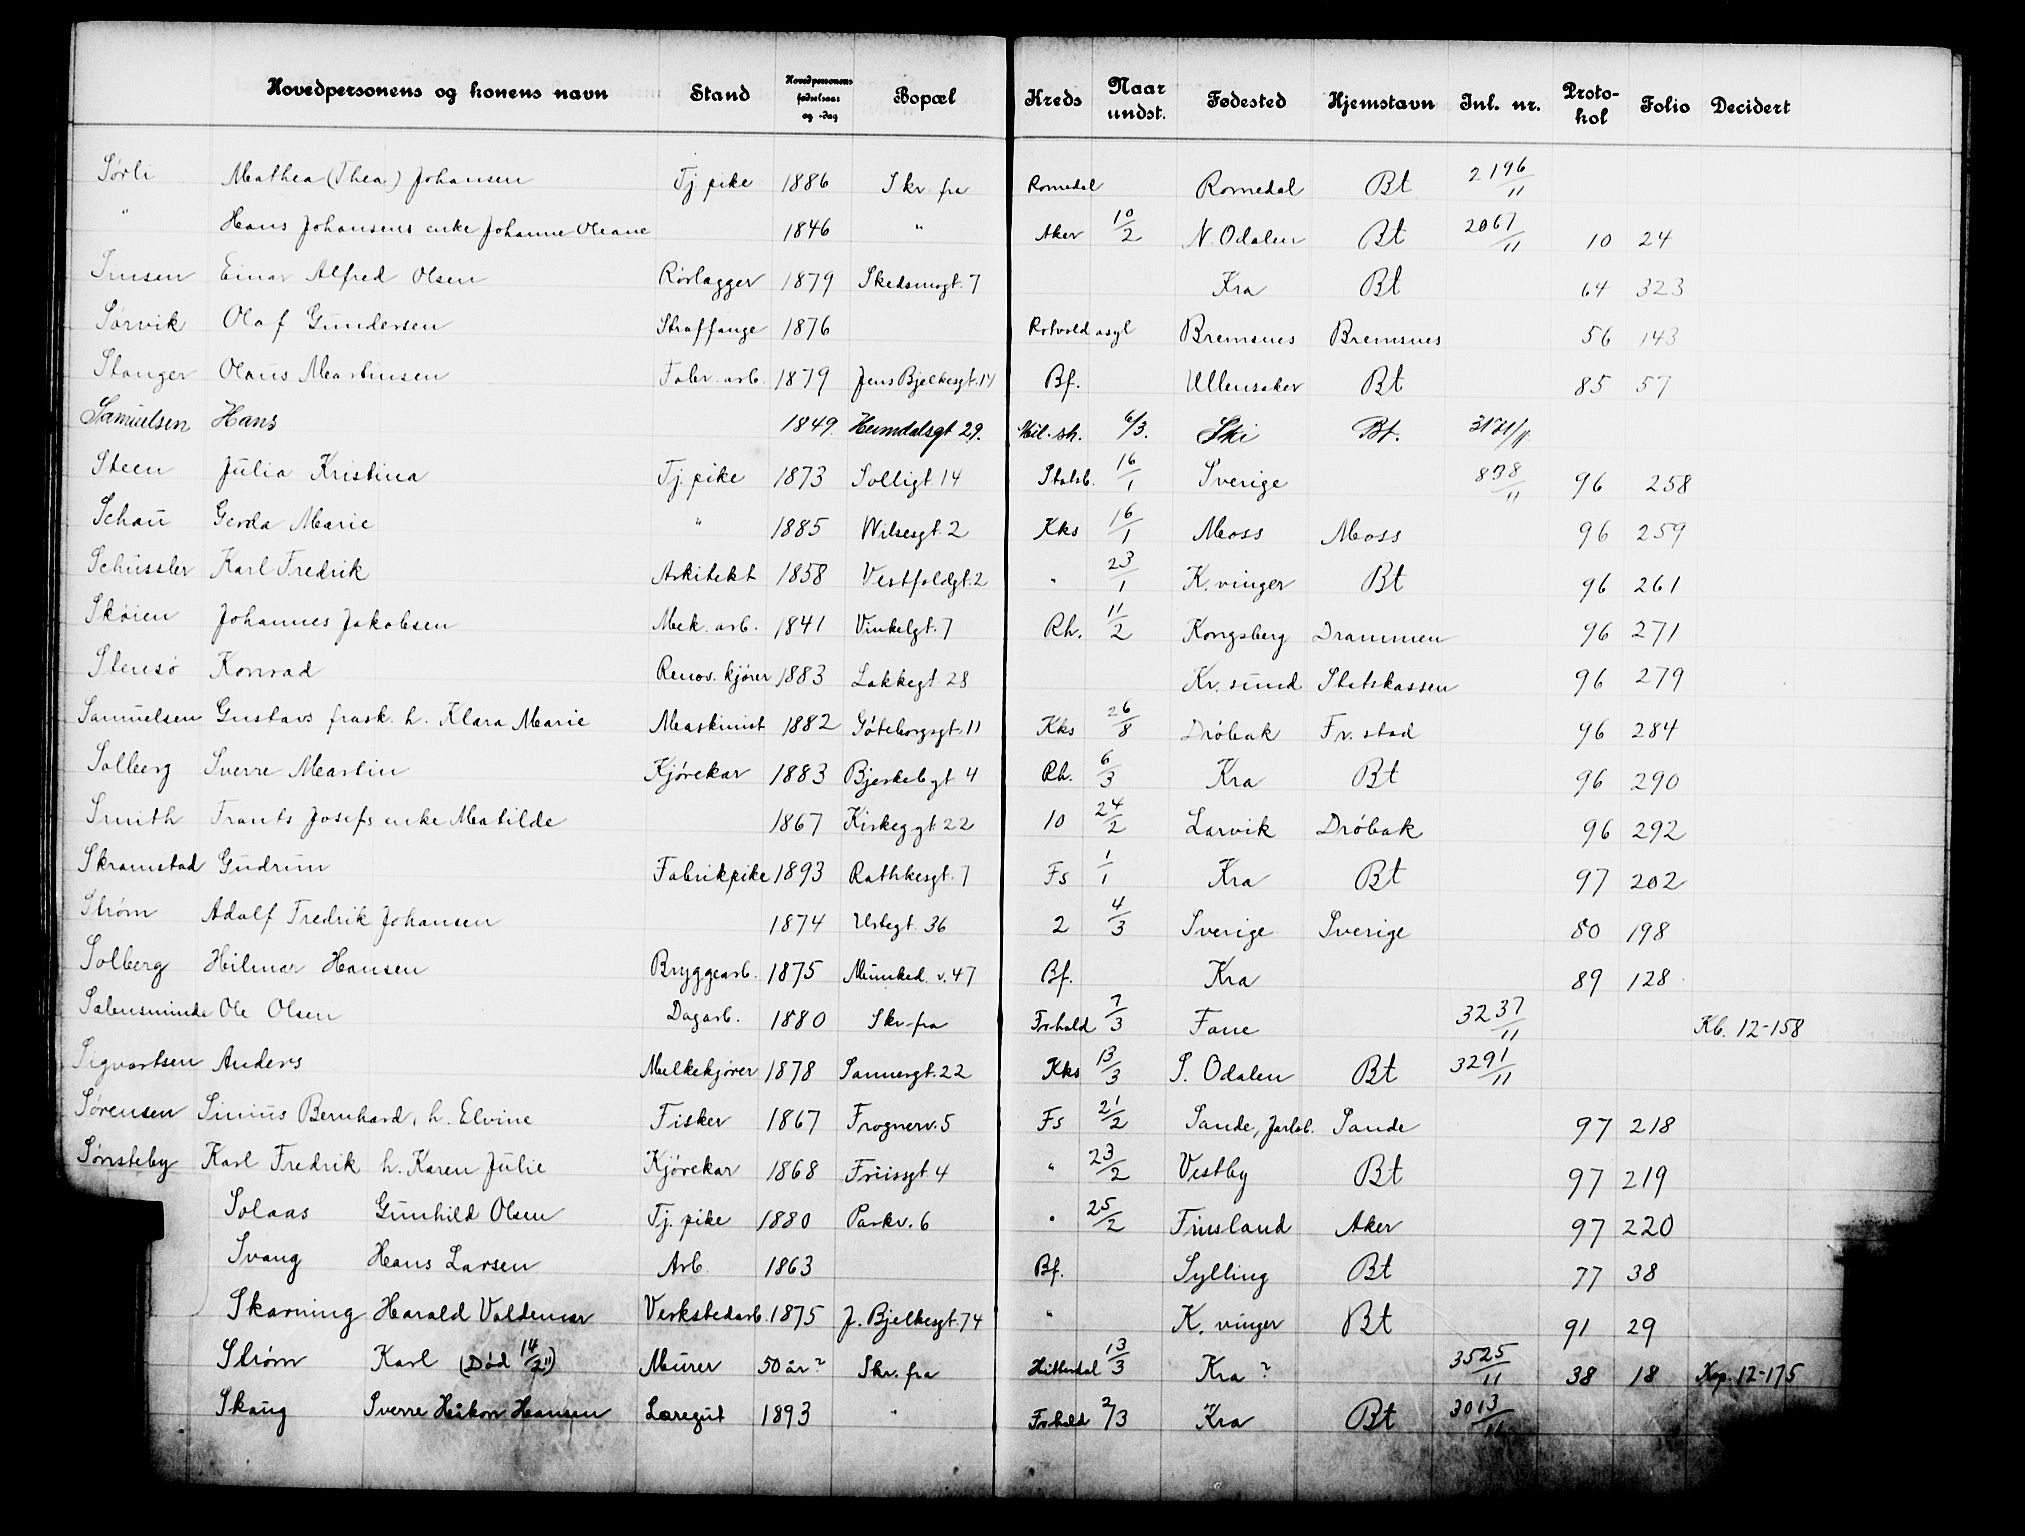 Hovedpersonens og konens navn Stand Hovedpersonens fødselsaar og -dag Bopæl Kreds Naar undst. Fødested Hjemstavn Inl. nr. Protokol Folio Decidert
Sørli Mathea (Thea) Johansen Tj. pike 1886 Skr. fra Romedal Romedal Bt 2196/11
" Hans Johansens enke Johanne Oleane 1846 " Aker 10/2 N. Odalen Bt 2067/11 10 24
Einar Alfred Olsen Rørlægger 1879 Skedsmogt. 7 Kra Bt 64 323
Sørvik Olaf Gundersen Straffange 1876 Rotvold asyl Bremsnes Bremsnes 56 143
Stanger Olaus Martinsen Fabr. arb. 1879 Jens Bjelkesgt. 14 Bf. Ullensaker Bt 85 57
Samuelsen Hans 1849. Heimdalsgt 29. Mil. sk. 6/3. Ski Bt. 3171/11
Steen Julia Kristina Tj. pike 1873 Solligt 14 Statsb. 16/1 Sverige 838/11 96 258
Schau Gerda Marie " 1885 Wilsesgt. 2 Kks 16/1 Moss Moss 96 259
Schüssler Karl Fredrik Arkitekt 1858 Vestfoldgt. 2 " 23/1 K. vinger Bt 96 261
Skøien Johannes Jakobsen Mek. arb. 1841 Vinkelgt. 7 Rh. 11/2 Kongsberg Drammen 96 271
Stensø Konrad Renov. kjører 1883 Lakkegt. 28 Kr. sund Statskassen 96 279
Samuelsen Gustavs frask. h. Klara Marie Maskinist 1882 Gøteborgsgt. 11 Kks 26/8 Drøbak Fr. stad 96 284
Solberg Sverre Martin Kjørekar 1883 Bjerkebygt 4 Rh. 6/3 Kra Bt 96 290
Smith Frants Josefs enke Matilde 1867 Kirkeggt 22 10 24/2 Larvik Drøbak 96 292
Skramstad Gudrun Fabrikpike 1893 Rathkesgt. 7 Fs 1/1 Kra Bt 97 202
Strøm Adolf Fredrik Johansen 1874 Urtegt. 36 2 4/3 Sverige Sverige 80 198
Solberg Hilmar Hansen Bryggearb. 1875 Munked. v. 47 Bf. Kra 89 128
Sælensminde Ole Olsen Dagarb. 1880 Skr. fra Fr.hald 7/3 Fane 3237/11 Kb. 12-158
Sigvartsen Anders Melkekjører 1878 Sannergt. 22 Kks 13/3 S. Odalen Bt 3291/11
Sørensen Sinius Bernhard, h. Elvine Fisker 1867 Frognerv. 5 Fs 21/2 Sande, Jarlsb. Sande 97 218
Sønsteby Karl Fredrik h. Karen Julie Kjørekar 1868 Friisgt. 4 " 23/2 Vestby Bt 97 219
Solaas Gunhild Olsen Tj. pike 1880 Parkv. 6 " 25/2 Finsland Aker 97 220
Svang Hans Larsen Arb. 1863 Bf. Sylling Bt 77 38
Skarning Harald Valdemar Verkstedarb. 1875 J. Bjelkesgt. 74 " K. vinger Bt 91 29
Strøm Karl (Død 14/2 11) Murer 50 år? Skr. fra Hitterdal 13/3 Kra? 3525/11 38 18 Kop. 12-175
Skaug Sverre Håkon Hansen Læregut 1893 " Fr.hald 2/3 Kra Bt 3013/11